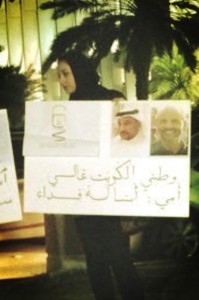 وطني الكويت غالي
أمي: أنا له فداء